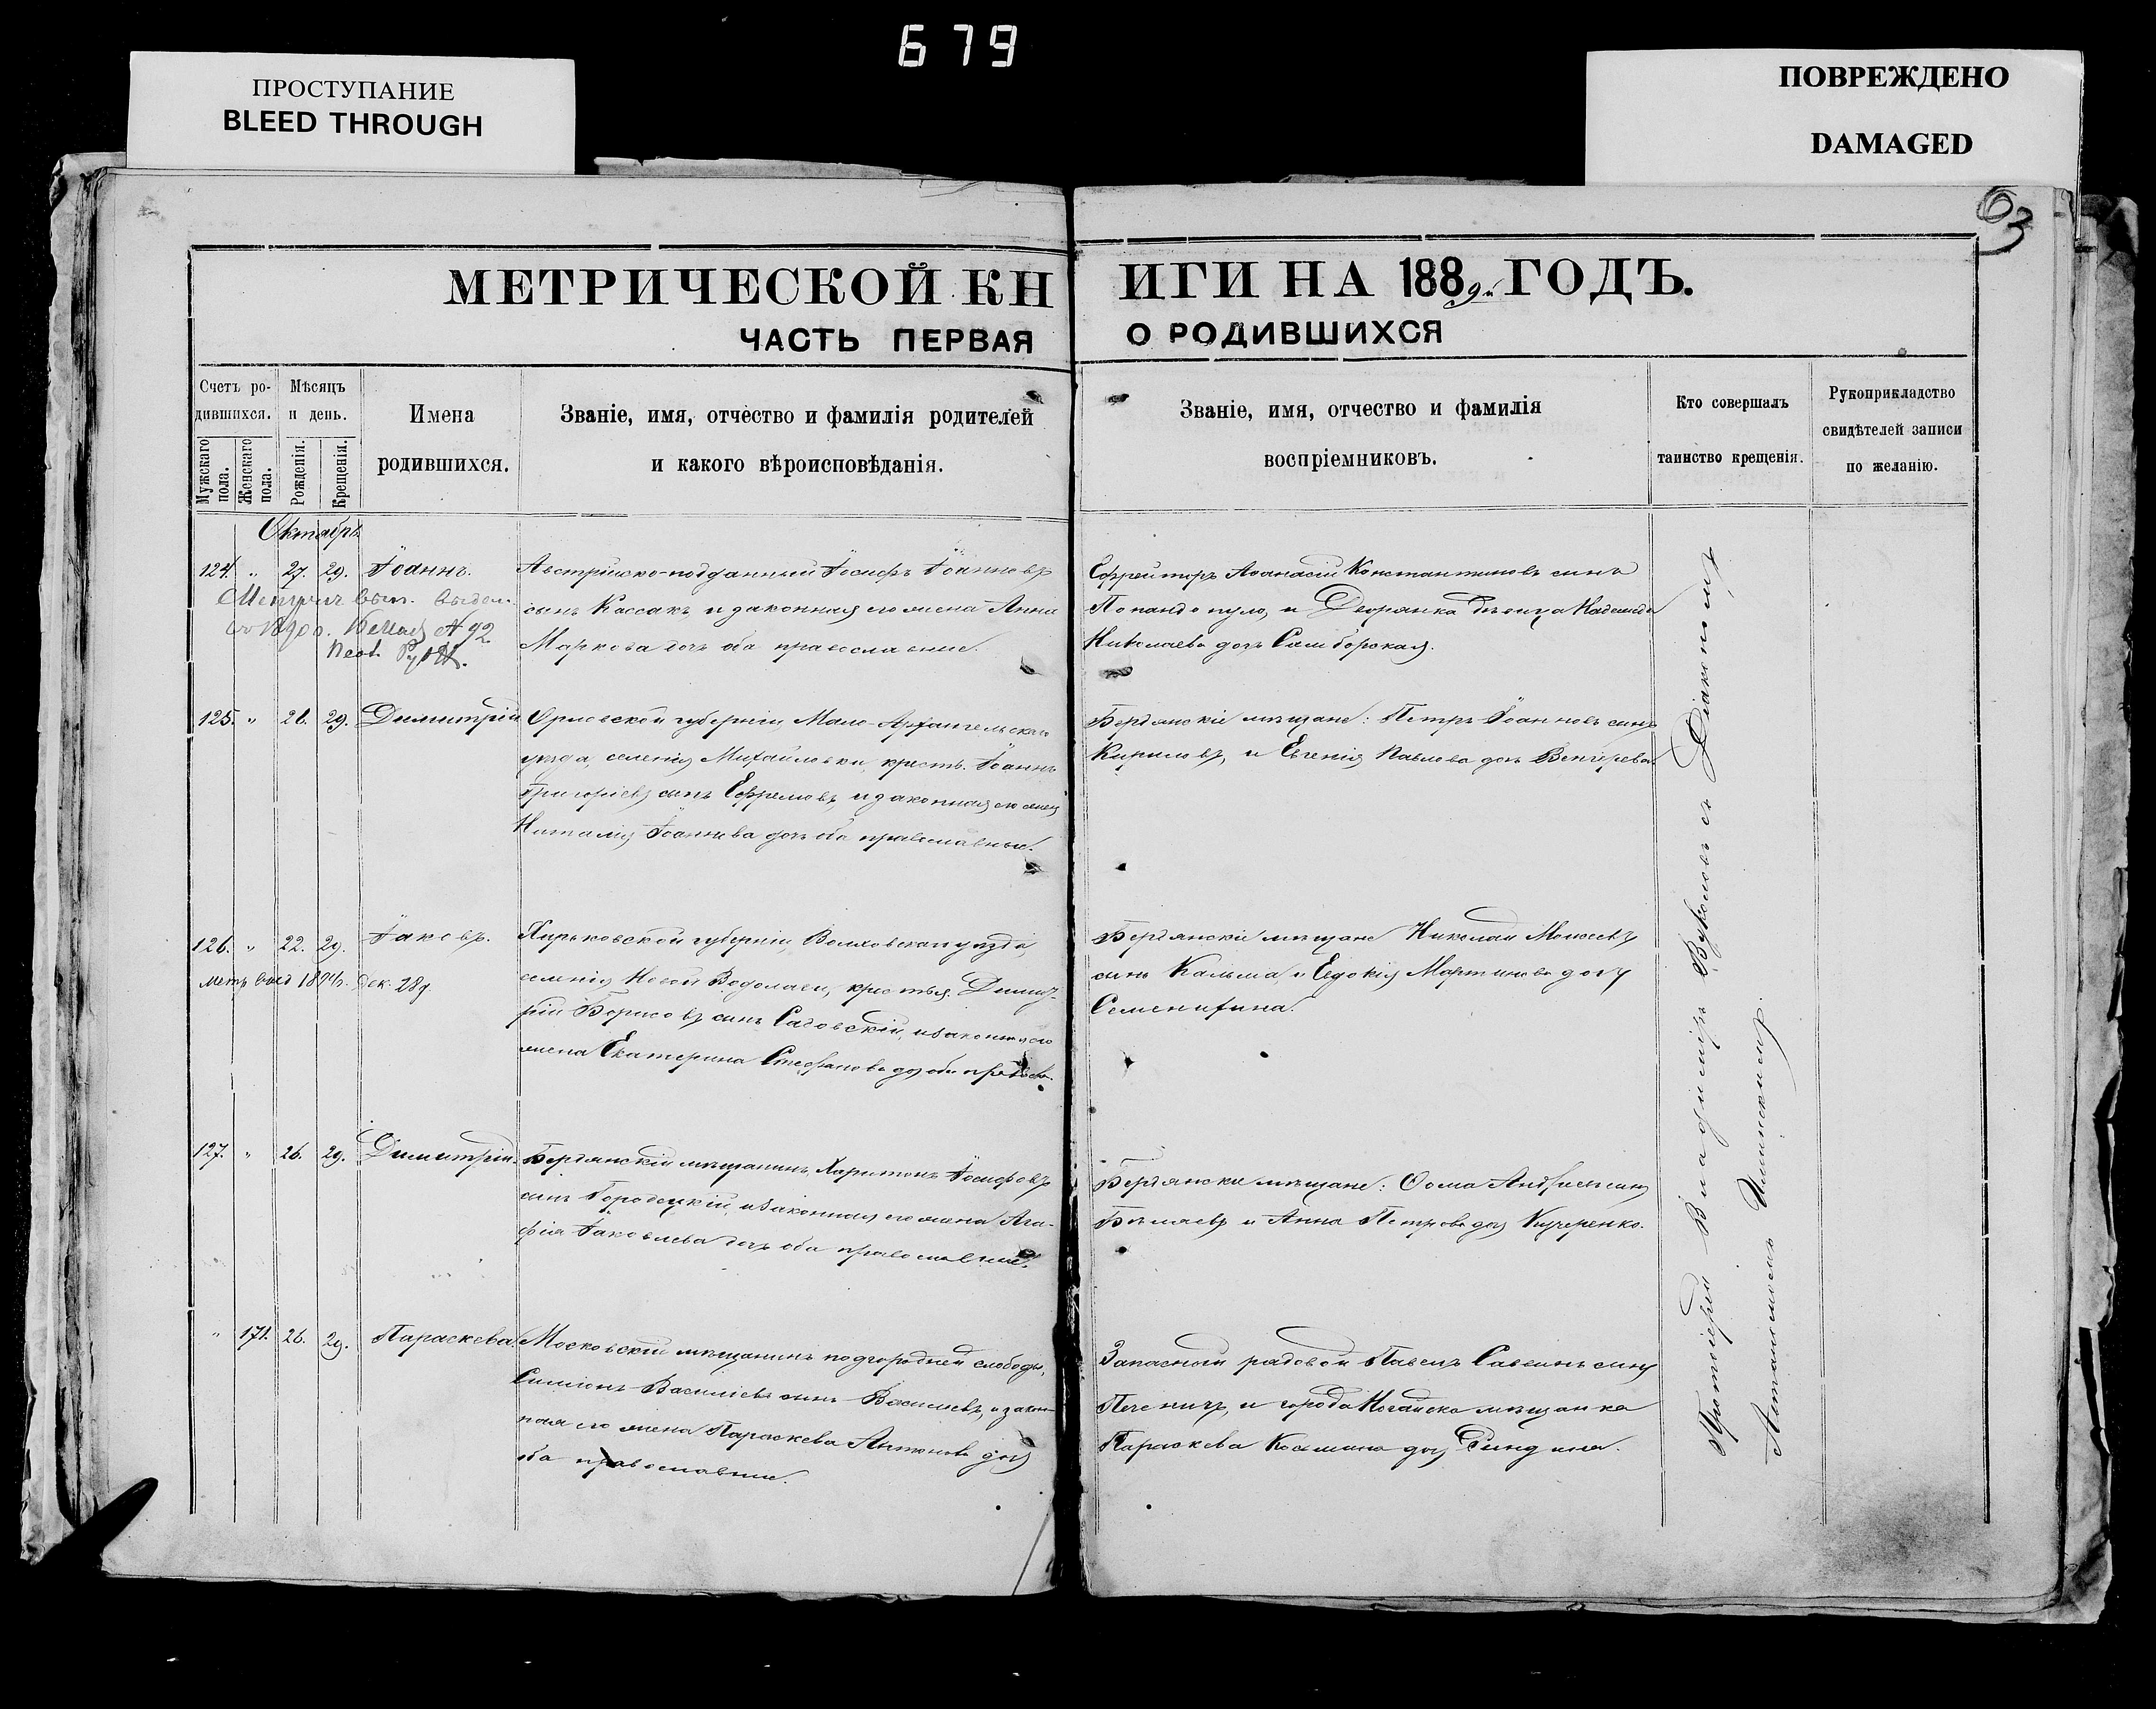 679
ПРОСТУПАНИЕ
BLEED THROUGH
ПОВРЕЖДЕНО
DAMAGED
63
МЕТРИЧЕСКОЙ КНИГИ НА 1889й ГОДЪ.
ЧАСТЬ ПЕРВАЯ О РОДИВШИХСЯ
Счетъ ро-
дившихся.
Мужскаго пола.
Женскаго пола.
Мѣсяцъ
и день.
Рожденія.
Крещенія.
Имена
родившихся.
Званіе, имя, отчество и фамилія родителей
и какого вѣроисповѣданія.
Званіе, имя, отчество и фамилія
воспріемниковъ.
Кто совершалъ
таинство крещенія.
Рукоприкладство
свидѣтелей записи
по желанію.
Октябрь
124. " 27. 29. Іоаннъ.
Австрійско-подданный Іосифъ Іоанновъ
сынъ Кассакъ, и законная его жена Анна
Маркова дочь оба православные.
Ефрейторъ Аѳанасій Константиновъ сынъ
Попандопуло, и Дворянка дѣвица Надежда
Николаева дочь Самборская.
125. " 21. 29. Димитрій
Орловской губерніи, Мало-Архангельскаго
уѣзда, селенія Михайловки, крест. Іоаннъ
Григоріевъ сынъ Ефремовъ, и законная его жена
Наталія Іоаннова дочь оба православные.
Бердянскіе мѣщане: Петръ Іоанновъ сынъ
Кириловъ, и Евгенія Павлова дочь Венгерева.
126. " 22. 29. Іаковъ.
метр выд 1894г. Дек. 28д.
Харьковской губерніи, Валковскаго уѣзда,
селенія Новой Водолаги, крестья. Димит-
рій Борисовъ сынъ Садовскій, и законная его
жена Екатерина Стефанова дочь оба правосл.
Бердянскіе мѣщане Николай Моисеевъ
сынъ Кальма, и Евдокія Мартинова дочь
Семенихина.
127. " 26. 29. Димитрій.
Бердянскій мѣщанинъ Харитонъ Іосифовъ
сынъ Городецкій, и законная его жена Ага-
фія Іаковлева дочь оба православные.
Бердянскіе мѣщане: Ѳома Андреевъ сынъ
Бѣляевъ и Анна Петрова дочь Кучеренко.
" 171. 26. 29. Параскева.
Московскій мѣщанинъ подгородней слободы,
Симіонъ Василіевъ сынъ Василіевъ, и закон-
ная его жена Параскева Антонова дочь
оба православные.
Запасный рядовой Павелъ Саввинъ сынъ
Печеничъ, и города Ногайска мѣщанка
Параскева Косьмина дочь Гиндина.
Протоіерей Владиміръ Вуколовъ съ Діакономъ
Анатоліемъ Ильинскимъ.